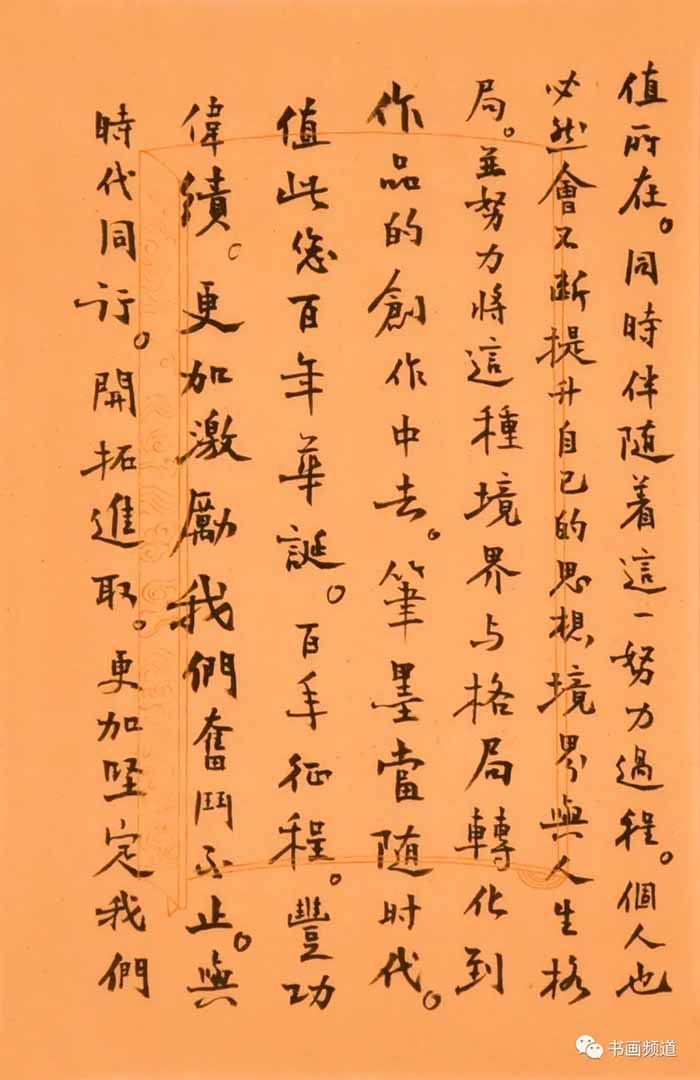 值所在。同時伴随着這一努力過程。個人也
必然會不断提升自己的思想境界與人生格
局。並努力將這種境界与格局轉化到
作品的創作中去。筆墨當随时代。
值此您百年華誕。百年征程。豐功
偉績。更加激勵我們奮鬥不止。與
時代同行。開拓進取。更加坚定我們
书画频道